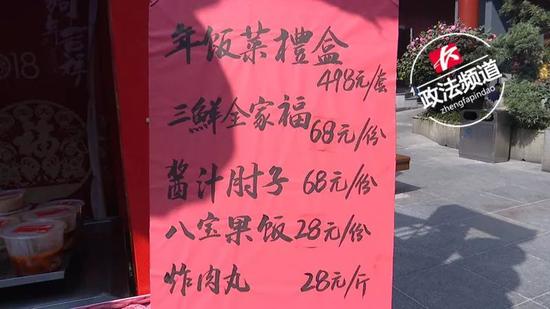 年饭菜禮盒
498元/套
三鮮全家福
68元/份
酱汁肘子 68元/份
八宝果饭 28元/份
炸肉丸 28元/斤
政法频道
zhengfapindao
2018